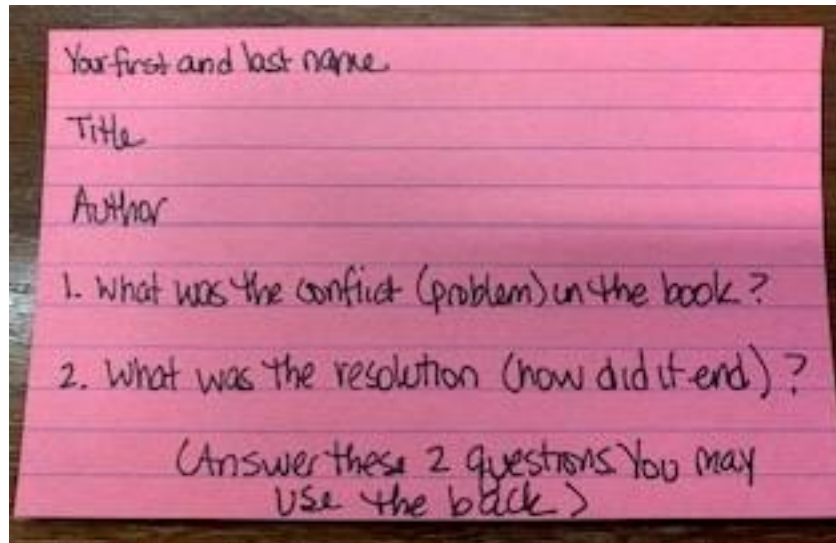 Your first and last name
Title
Author
1. What was the conflict (problem) in the book?
2. What was the resolution (how did it end)?
(Answer these 2 questions You may
use the back)